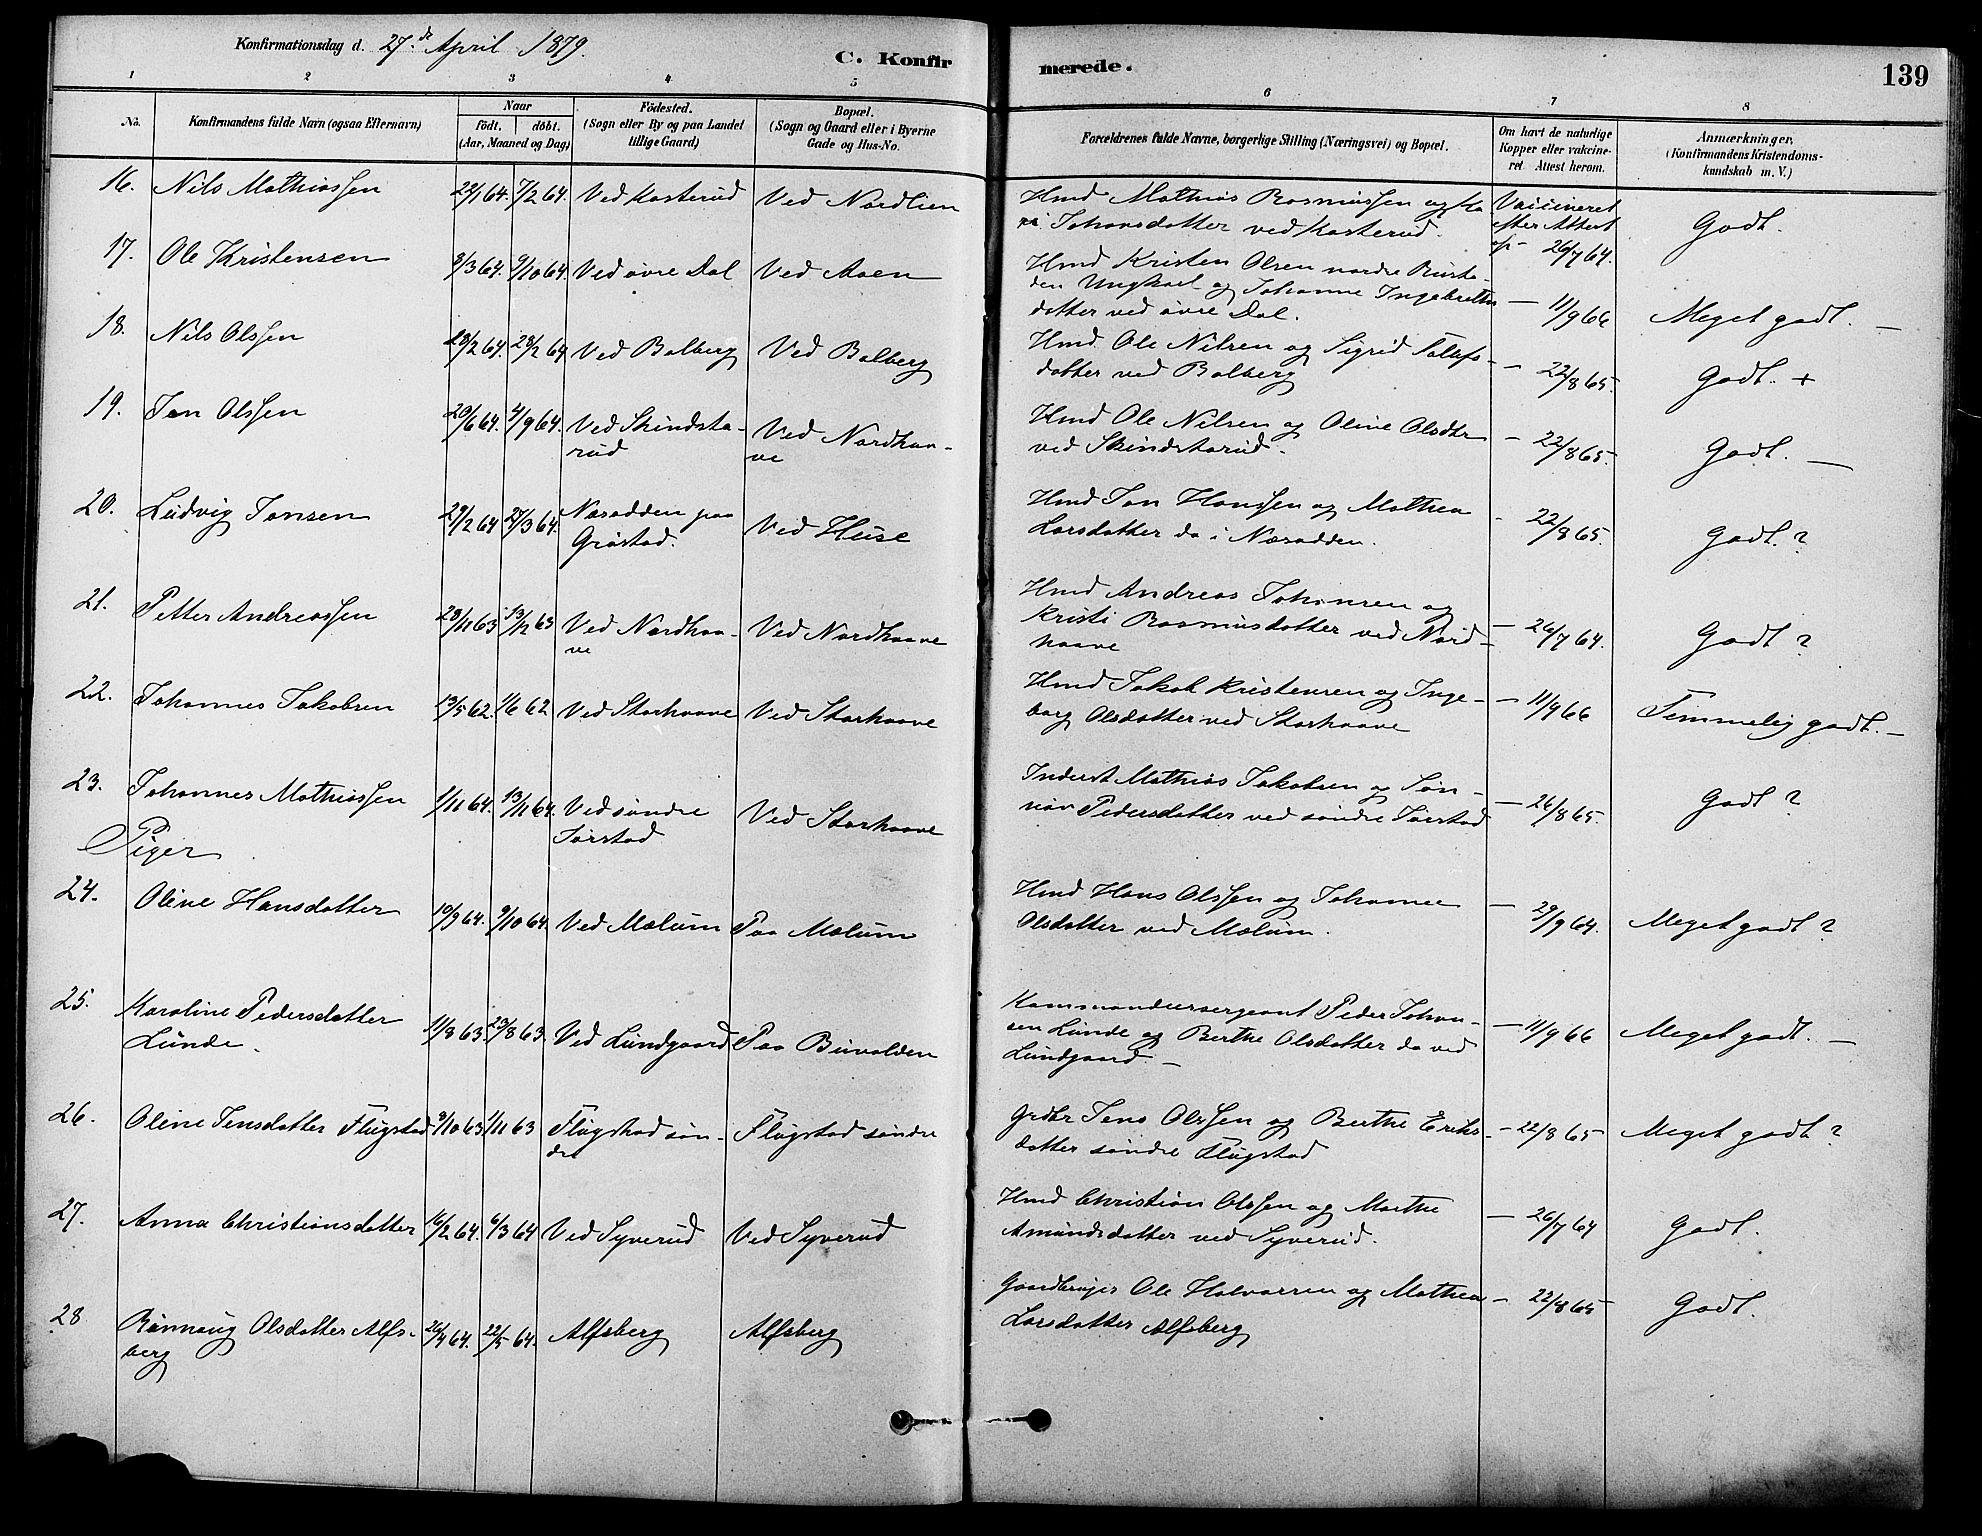 Konfirmationsdag d. 27.de April 1879.
C. Konfirmerede.
139
1 2 3 4 5 6 7 8
No. Konfirmandens fulde Navn (ogsaa Efternavn)
Naar
födt. döbt.
(Aar, Maaned og Dag)
Födested.
(Sogn eller By og paa Landet
tillige Gaard)
Bopæl.
(Sogn og Gaard eller i Byerne
Gade og Hus-No.
Forældrenes fulde Navne, borgerlige Stilling (Næringsvei) og Bopæl.
Om havt de naturlige
Kopper eller vakcine-
ret Attest herom.
Anmærkninger,
(Konfirmandens Kristendoms-
kundskab m. V.)
16. Nils Mathiassen 22/1 64. 7/2 64. Ved Kasterud Ved Nordlien
Hmd Mathias Rasmussen og Ka
ri Johansdatter ved Kasterud.
Vaccineret
efter Attest
af 26/7 64.
Godt.
17. Ole Kristensen 3/3 64. 9/10 64. Ved øvre Dal Ved Aaen
Hmd Kristen Olsen nordre Rusta-
den Ungkarl og Johanne Ingebretts
datter ved øvre Dal.
— 11/9 66 Meget godt. —
18. Nils Olssen 23/2 64. 28/2 64 Ved Balberg Ved Balberg
Hmd. Ole Nilsen og Sigrid Tolefs-
datter ved Balberg
— 22/8 65. Godt. +
19. Jon Olssen 20/6 64. 4/9 64. Ved Skindsta-
rud
Ved Nordhaa-
ve
Hmd Ole Nilsen og Oline Olsdtr
ved Skindstarud.
— 22/8 65. Godt. —
20. Ludvig Jonsen 29/2 64 27/3 64. Næsodden paa
Gröstad.
Ved Huse
Hmd Jon Hanssen og Mathea
Larsdatter da i Næsodden.
- 22/8 65. Godt. ?
21. Petter Andreassen 28/11 63 13/12 63 Ved Nordhaa-
ve
Ved Nordhaave
Hmd Andreas Johansen og
Kristi Rasmusdatter ved Nord-
haave
— 26/7 64. Godt ?
22. Johannes Jakobsen 13/5 62. 1/6 62 Ved Storhaave Ved Storhaave
Hmd Jakob Kristensen og Inge-
borg Olsdatter ved Storhaave
— 11/9 66 Temmelig godt. —
23. Johannes Mathiassen 1/11 64. 13/11 64. Ved söndre
Jörstad
Ved Storhaave
Inderst Mathias Jakobsen og Sön-
növ Pedersdatter ved söndre Jörstad
— 26/8 65. Godt ?
Piger
24. Oline Hansdatter 10/9 64. 9/10 64. Ved Mælum Paa Mælum
Hmd Hans Olssen og Johanne
Olsdatter ved Mælum.
— 29/9 64. Meget godt ?
25. Karoline Pedersdatter
Lunde.
11/8 63. 23/8 63. Ved Lundgaard Paa Buvolden
Kommandeersergeant Peder Johan-
sen Lunde og Berthe Olsdatter da ved
Lundgaard. —
— 11/9 66 Meget godt. —
26. Oline Jensdatter Flugstad 3/10 63 1/11 63 Flugstad sön-
dre
Flugstad söndre
Grdbr Jens Olssen og Berthe Eriks-
datter söndre Flugstad
— 22/8 65 Meget godt ?
27. Anna Christiansdatter 16/2 64. 6/3 64 Ved Syverud Ved Syverud
Hmd Christian Olssen og Marthe
Amundsdatter ved Syverud.
— 26/7 64 Godt.
28 Rönnaug Olsdatter Alfs-
berg
26/4 64. 22/5 64. Alfsberg Alfsberg
Gaardbruger Ole Halvorsen og Mathea
Larsdatter Alfsberg
— 22/8 65 Godt.